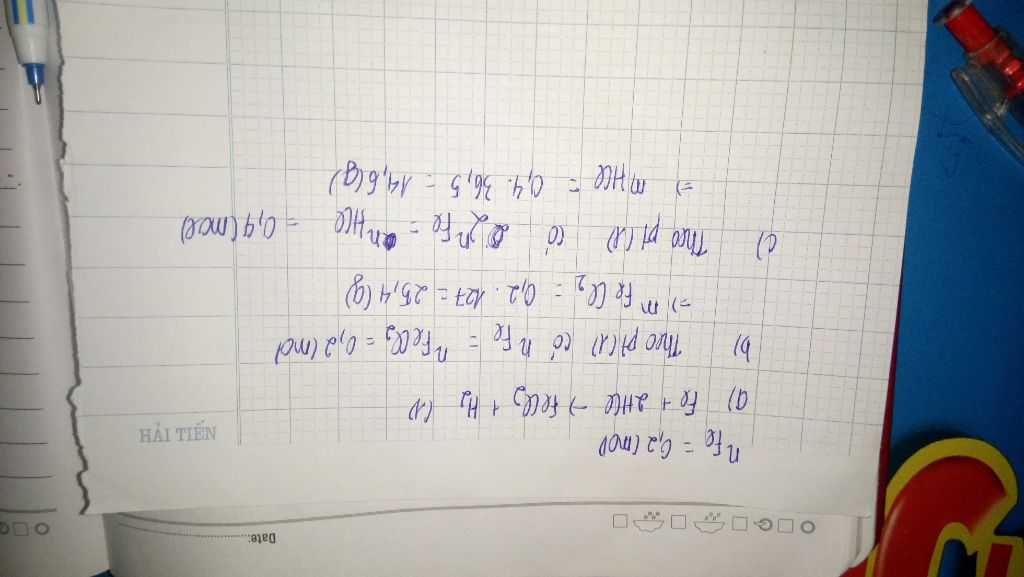 Date:
HẢI TIẾN
nFe = 0,2 (mol)
a) Fe + 2HCl → FeCl2 + H2 (1)
b) Theo pt (1) có nFe = nFeCl2 = 0,2 (mol)
=> mFeCl2 = 0,2 . 127 = 25,4 (g)
c) Theo pt (1) có 2nFe = nHCl = 0,4 (mol)
=> mHCl = 0,4 . 36,5 = 14,6 (g)